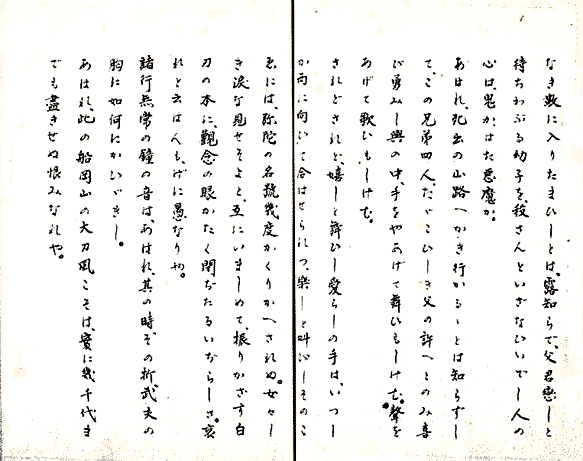 なき数に入りたまひしとは、露知らで、父君戀しと
待ちわぶる幼子を、殺さんといざなひいでし人の
心は、鬼かはた悪魔か。
あはれ、死出の山路へかき行かるゝとは知らずし
て、この兄弟四人、たゞこひしき父の許へとのみ喜
び勇みし輿の中手をやあげて舞ひもしけむ。聲を
あげて歌ひもしけむ。
されどされど、嬉しと舞ひし愛らしの手は、いつし
か西に向いて合はせられつ、樂しと叫びしそのこ
ゑには、弥陀の名號幾度かくりかへされぬ。女々し
き涙な見せそよと、互にいましめて、振りかざす白
刃の本に、觀念の眼かたく閉ぢたるいぢらしさ。哀
れと云はんも、げに愚なりや。
諸行無常の鐘の音は、あはれ、其の時、その折武夫の
胸に如何にかひゞきし。
あはれ、此の船岡山の太刀風こそは、實に幾千代ま
でも盡きせぬ恨みなれや。